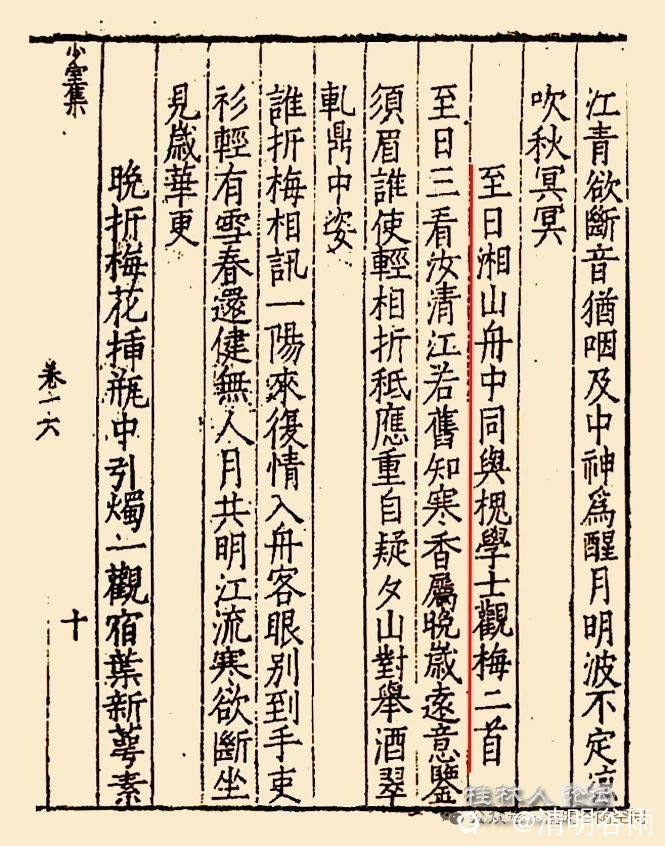 江青欲斷音猶咽及中神爲醒月明波不定凉
吹秋冥冥
至日湘山舟中同與槐學士觀梅二首
至日三看汝清江若舊知寒香屬晚歲遠意鑒
須眉誰使輕相折秪應重自疑夕山對舉酒翠
軋鼎中姿
誰折梅相訊一陽來復情入舟客眼別到手吏
衫輕有雪春還健無人月共明江流寒欲斷坐
見歲華更
晚折梅花揷瓶中引燭一觀宿葉新萼素
少室集
卷一六
十
桂林人论坛
@清明谷雨